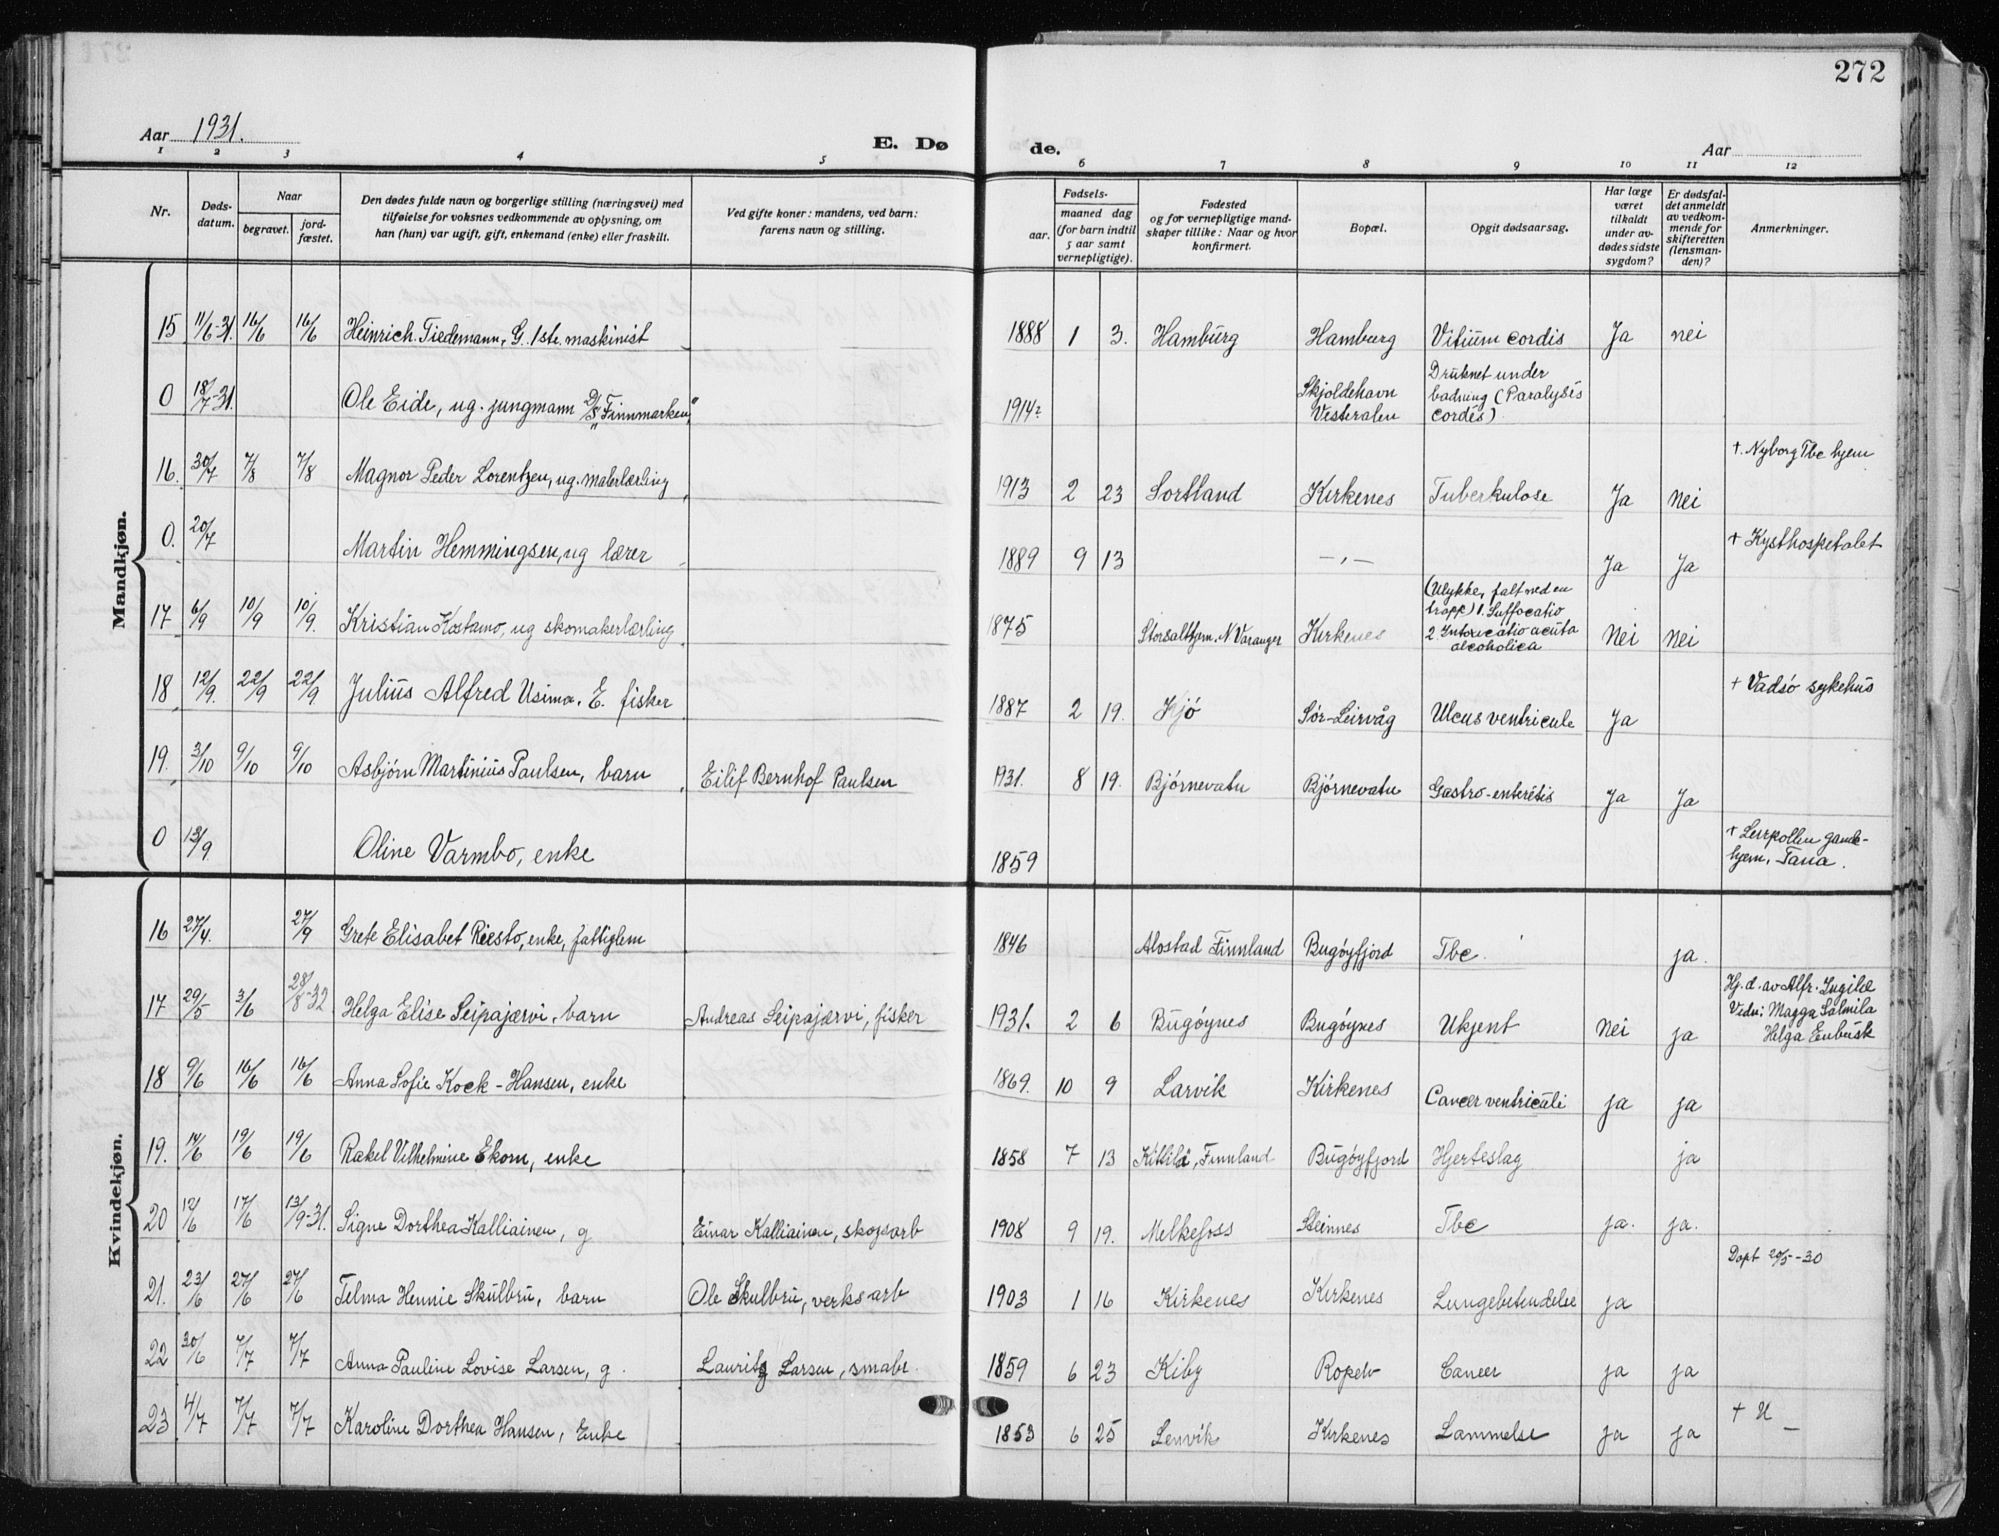 272
Aar 1931.
E. Dø de.
Aar
1 2 3 4 5 6 7 8 9 10 11 12
Nr.
Døds-
datum.
Naar
begravet.
jord-
fæstet.
Den dødes fulde navn og borgerlige stilling (næringsvei) med
tilføielse for voksnes vedkommende av oplysning, om
han (hun) var ugift, gift, enkemand (enke) eller fraskilt.
Ved gifte koner: mandens, ved barn:
farens navn og stilling.
Fødsels-
aar.
maaned dag
(for barn indtil
5 aar samt
vernepligtige).
Fødested
og for vernepligtige mand-
skaper tillike: Naar og hvor
konfirmert.
Bopæl.
Opgit dødsaarsag.
Har læge
været
tilkaldt
under av-
dødes sidste
sygdom?
Er dødsfal-
det anmeldt
av vedkom-
mende for
skifteretten
(lensman-
den)?
Anmerkninger.
Mandkjøn.
15 11/6-31. 16/6 16/6 Heinrich Tiedemann, G. 1ste maskinist 1888 1 3. Hamburg Hamburg Vitium cordis Ja nei
0 18/7-31. Ole Eide, ug. jungmann D/S "Finnmarken" 1914? Skjoldehavn
Vesteralen
Druknet under
badning (Paralysis
cordis)
16. 30/7 7/8 7/8 Magnor Peder Lorentzen, ug. malerlærling 1913 2 23 Sortland Kirkenes Tuberkulose Ja Nei + Nyborg Tbc hjem
0. 20/7 Martin Hemmingsen, ug lærer 1889 9 13 —,— Ja Ja + Kysthospitalet
17 6/9 10/9 10/9. Kristian Kostamo, ug skomakerlærling 1875 N Varanger Kirkenes
(Ulykke, falt ned en
trapp) 1. Suffocatio
2 Intoxicatio acuta
alcoholica
Nei Nei
18 12/9. 22/9 22/9 Julius Alfred Usima. E. fisker 1887 2 19. Kjø Sør-Leirvåg Ulcus ventricule Ja + Vadsø sykehus
19. 3/10 9/10 9/10 Asbjørn Martinius Paulsen, barn Eilif Bernhof Paulsen 1931. 8 19. Bjørnevatn Bjørnevatn Gastro-enteritis Ja Ja
0 13/9. Oline Varmbo, enke 1859 + Leirpollen gamle-
hjem, Tana.
Kvindekjøn.
16 27/4. 27/9 Grete Elisabet Riesto, enke, fattiglem 1846 Finnland Bugøyfjord Tbc. ja.
17 29/5 3/6 28/8-32 Helga Elise Seipajærvi, barn Andreas Seipajærvi, fisker 1931. 2 6 Bugøynes Bugøynes Ukjent Nei ja
Hj. d. av Alfr. Ingilæ
Vidn: Magga Salmila
Helga Enbusk
18 9/6 16/6 16/6 Anna Sofie Kock-Hansen, enke 1869. 10 9 Larvik Kirkenes Cancer ventriculi ja ja
19. 14/6 19/6 19/6 Rakel Vilhelmine Ekorn, enke 1858 7 13 Kittilä, Finnland Bugøyfjord Hjerteslag ja
20 12/6 17/6 13/9-31. Signe Dorthea Kalliainen, g Einar Kalliainen, skogsarb 1908 9 19. Melkefoss Steinnes Tbc ja. ja.
21. 23/6 27/6 27/6 Telma Hennie Skulbru, barn Ole Skulbru, verksarb 1903 1 16 Kirkenes Kirkenes Lungebetendelse ja Døpt 20/5-30
22 30/6 7/7 7/7 Anna Pauline Lovise Larsen, g. Lauritz Larsen, småbr. 1859 6 23 Kiby Ropelv Cancer ja ja
23 4/7 7/7 7/7 Karoline Dorthea Hansen, Enke 1853 6 25 Lenvik Kirkenes Lammelse ja ja + U —